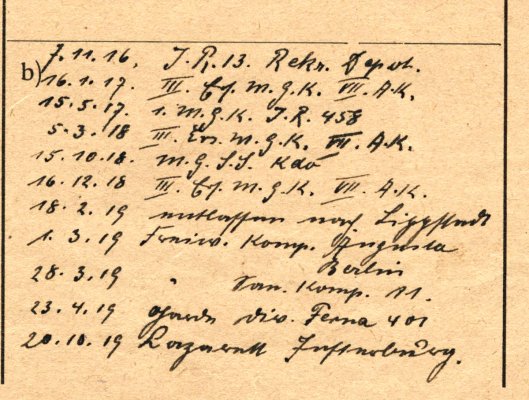 7.11.16, J.R.13. Rekr. Depot.
b) 16.1.17. III. Ers. M.G.K. VII. A.K.
15.5.17. 1. M.G.K. J.R. 458
5.3.18 III. Ers. M.G.K. VII. A.K.
15.10.18. M.G. S.S. Kdo
16.12.18 III. Ers. M.G.K. VII. A.K.
18.2.19 entlassen nach Lippstadt
1.3.19 Freiw. Komp. Augusta
Berlin
28.3.19 " San. Komp. 11.
23.4.19 Garde Div. Ferna 401
20.10.19 Lazarett Insterburg.